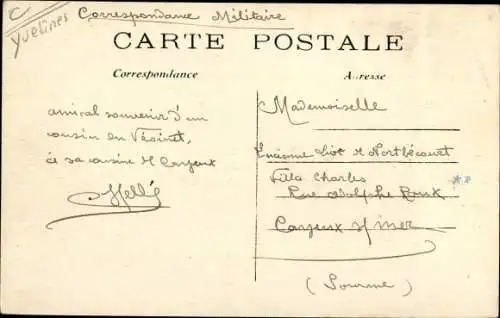 C
Yvelines
Correspondance Militaire
CARTE POSTALE
Correspondance
Adresse
amical souvenir d'un
cousin du Vésinet,
à sa cousine de Cayeux
Mademoiselle
Norbécourt
Villa Charles
Rue Adolphe Roux
Cayeux s/ mer
(Somme)